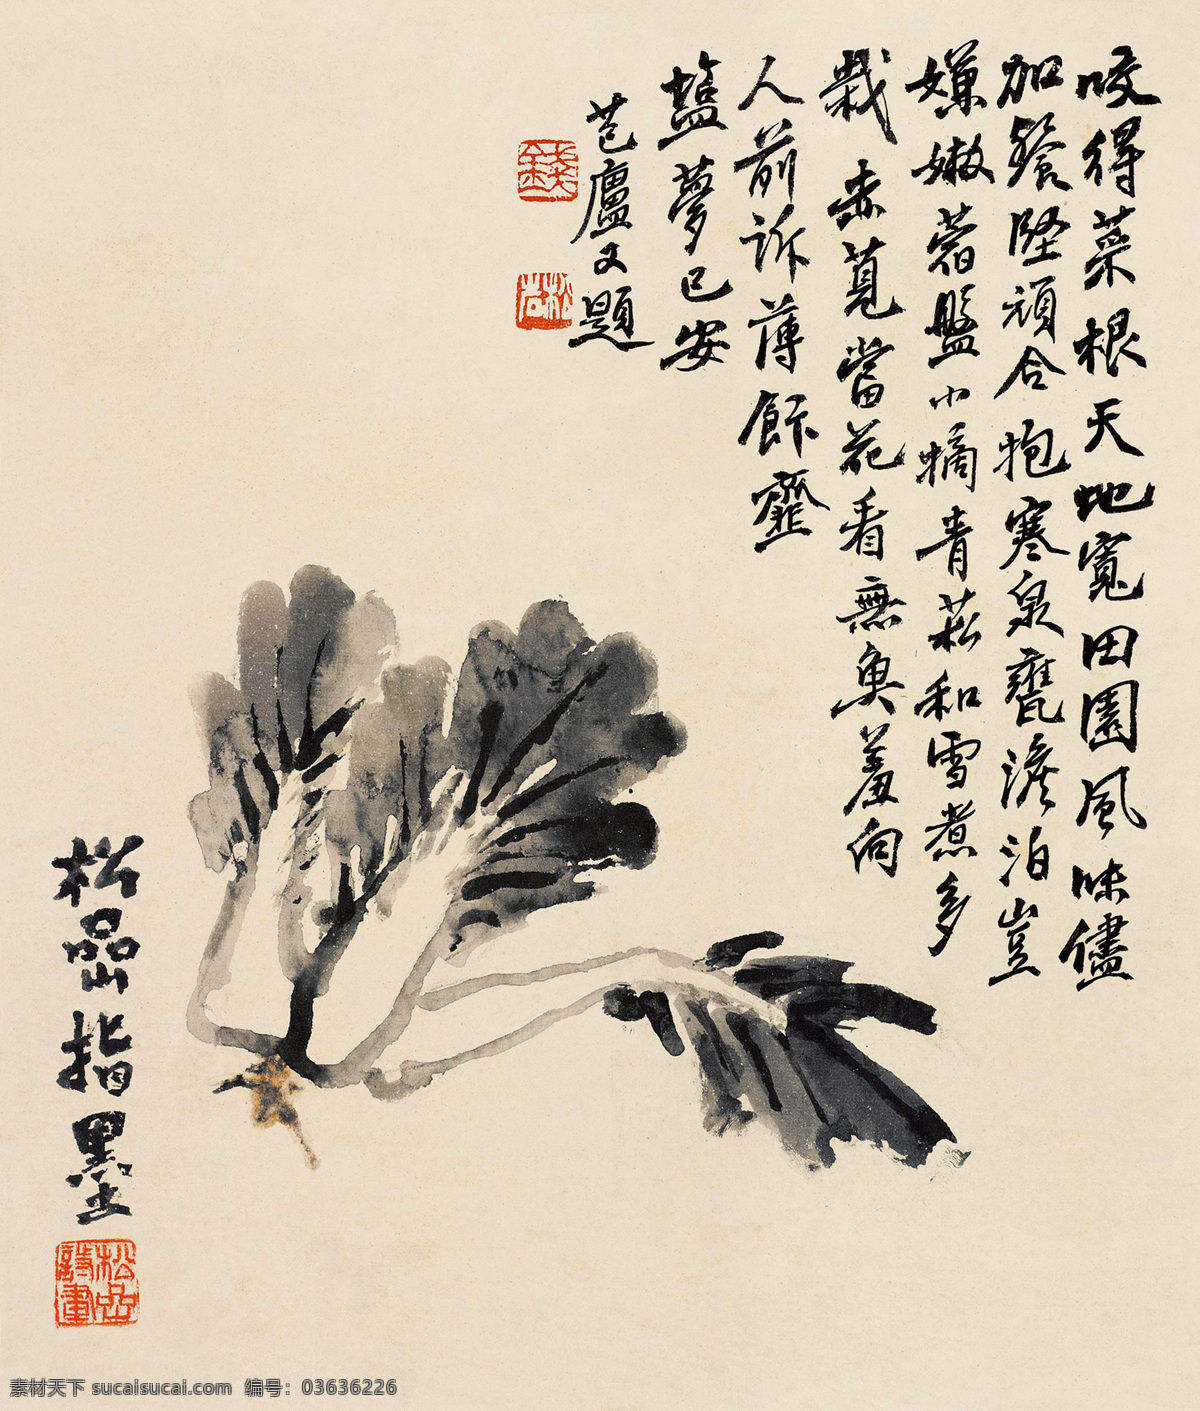 咬得菜根天地寬田園風味儘
加餐堅頑合抱寒泉甕澹泊豈
嫌嫩蓿盤小摘青菘和雪煮多
栽赤莧當花看無魚羞向
人前訴薄飰虀
鹽夢已安
苞廬又題
錢
松嵒
松嵒指墨
松嵒詩畫
素材天下 sucaisucai.com 编号：03636226